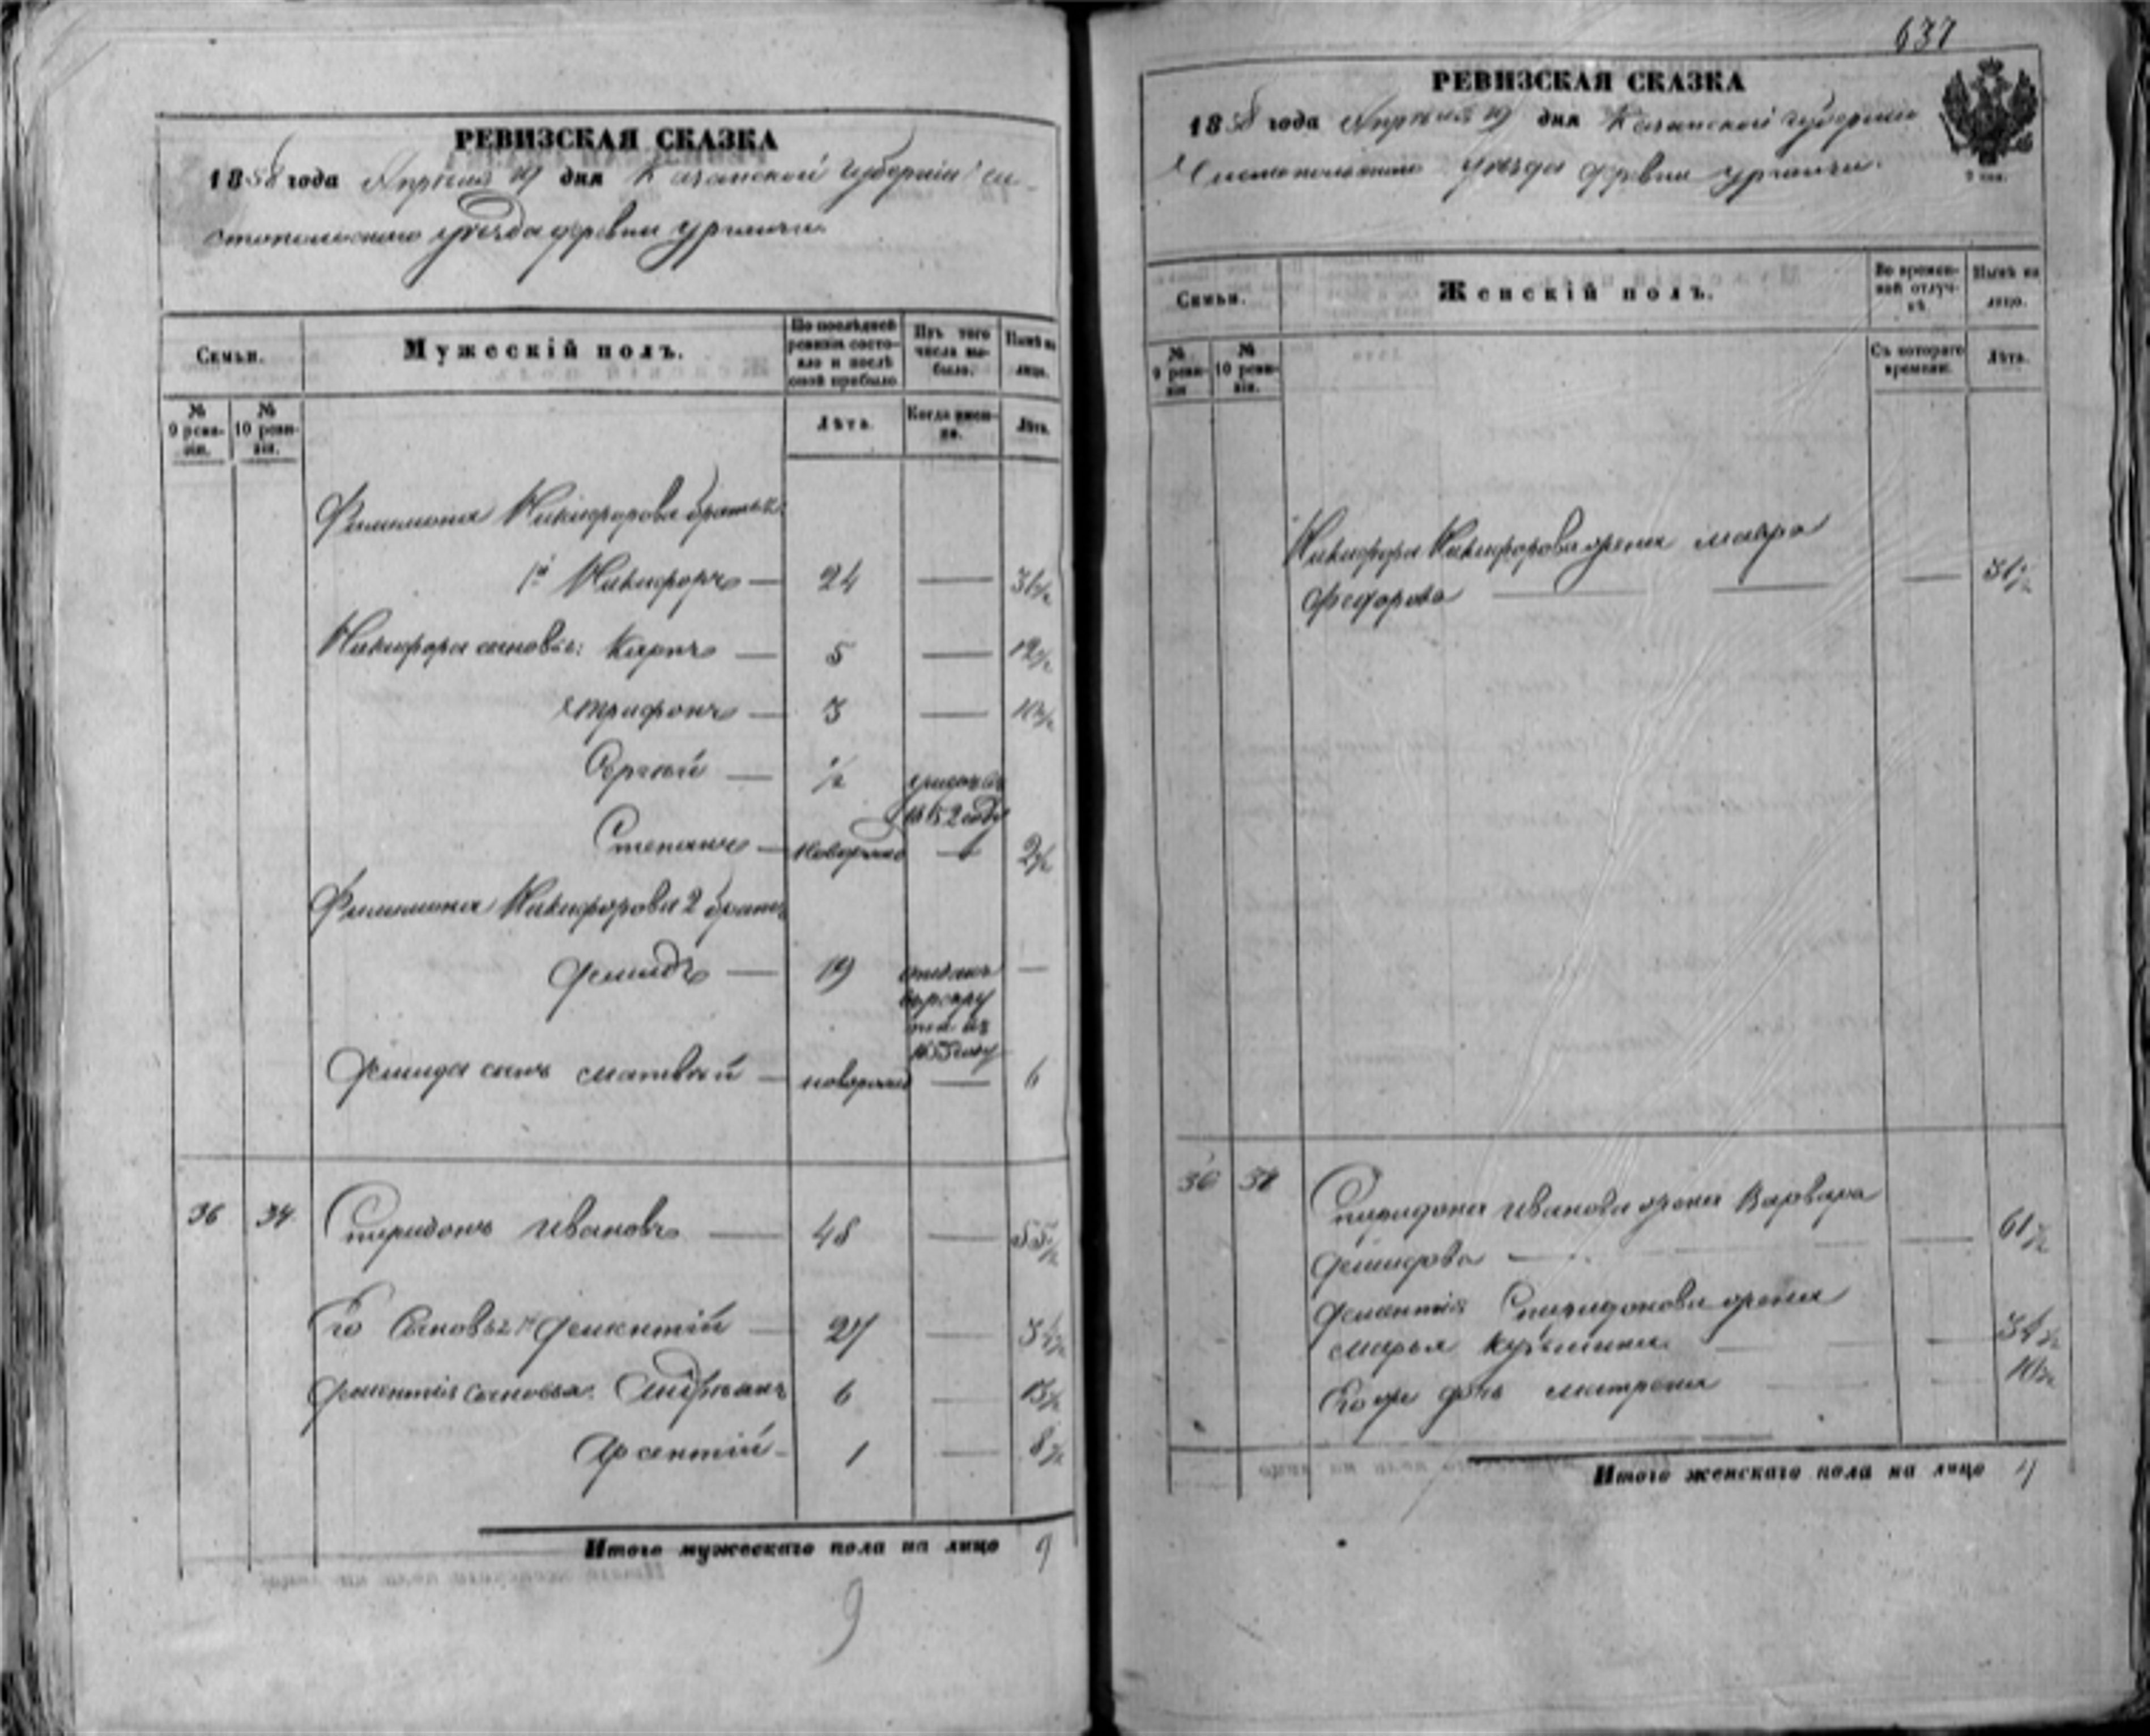 РЕВИЗСКАЯ СКАЗКА
1858 года Апреля 19 дня Казанской губернии Чи-
стопольскаго уезда деревни
Семьи.
Мужескій полъ.
По последней ревизіи состояло и после оной прибыло
Изъ того числа выбыло.
Ныне на лицо.
№ 9 ревизіи.
№ 10 ревизіи.
Лета.
Когда именно.
Лета.
Филимона Никифорова братья:
1й Никифоръ — 24 — 31½
Никифора сыновья: Карпъ — 5 — 12½
Трифонъ — 3 — 10½
Сергей — ½
1852 году
Степанъ — новорож — 2½
Филимона Никифорова 2 братъ
Демидъ — 19 отданъ —
въ рекру
ты въ
1855 году
Демида сынъ Матвей — новорож — 6
36 34 Спиридонъ Ивановъ — 48 — 55½
Его Сыновья 1й Дементій — 27 — 34½
Дементія сыновья: — 6 — 13½
Арсентій — 1 — 8½
Итого мужескаго пола на лицо 9
9
637
РЕВИЗСКАЯ СКАЗКА
1858 года Апреля 19 дня Казанской губерніи
Чистопольскаго уезда деревни
Семьи.
Женскій полъ.
Во временной отлучке.
Ныне на лицо.
№ 9 ревизіи
№ 10 ревизіи.
Съ котораго времени.
Лета.
Никифора Никифорова жена Мавра
Федорова — — — 31½
36 34 Спиридона Иванова жена Варвара
Демидова — — 61½
Дементія Спиридонова жена
Марья Кузьмина — — 34½
Его же дочь Матрена — 10½
Итого женскаго пола на лицо 4